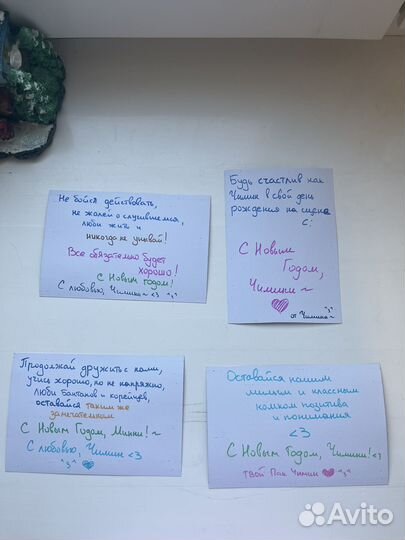 Не бойся действовать,
не жалей о случившемся,
люби жить и
никогда не унывай!
Все обязательно будет
хорошо!
С Новым годом!
С любовью, Чимин <3 "з"
Будь счастлив как
Чимин в свой день
рождения на сцене
с:
С Новым
Годом,
Чимини ~
"з"
от Чимина ~
Продолжай дружить с нами,
учись хорошо, но не напряжно,
люби Бантанов и корейцев,
оставайся таким же
замечательным
С Новым Годом, Минни! ~
С любовью, Чимин <3
"з"
Оставайся нашим
милым и классным
комком позитива
и понимания
<3
С Новым Годом, Чимини! <3
твой Пак Чимин "з"
Avito